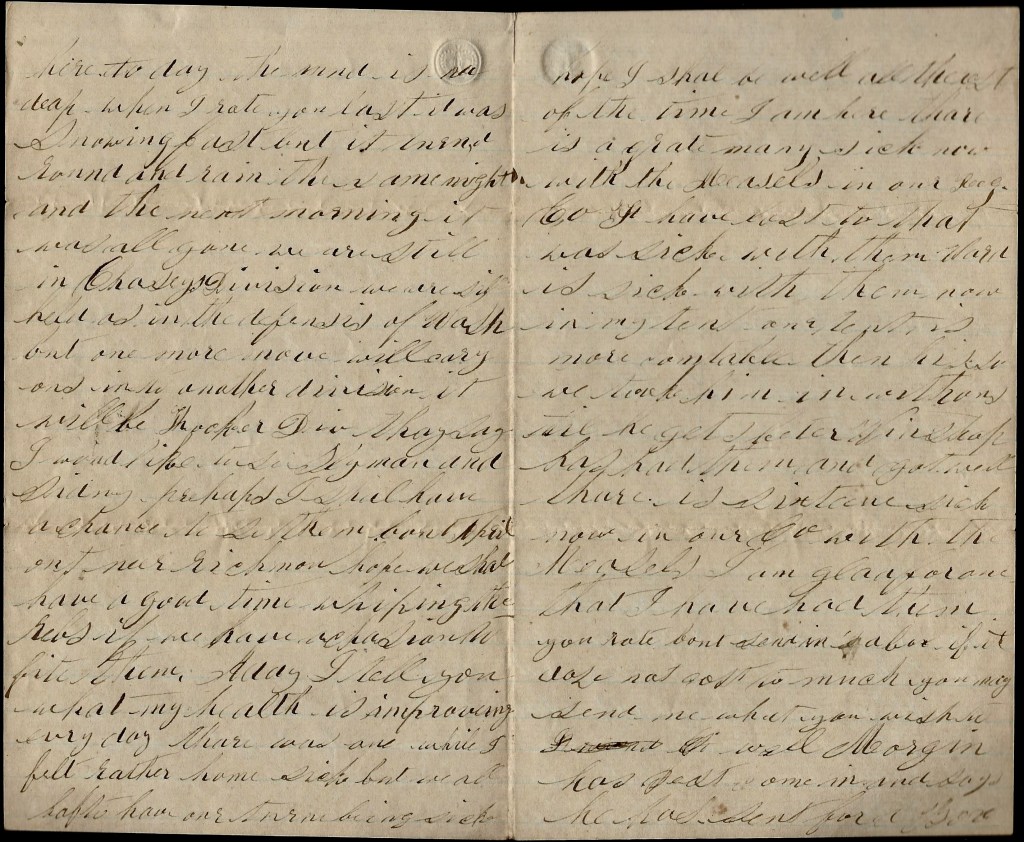 here to day the mud is
deap when I rate you last it was
Snowing fast but it turnd
round and rain the same night
and the next morning it
was all gone we are still
in Caseys Division we are
held as in the defensis of Wash
but one more move will cary
ous in to another division it
will be Hooker Div thay say
I wood like to se Sigman and
Sidny perhaps I shal have
a chance to se them bout April
out near Richmon hope we shal
have a good time whiping the
Rebs if we have to
fite them. A day I tell you
what my health is improving
evry day thare was one while I
felt rather home sick but we all
hafto have our turn being sick
hope I shal be well all the rest
of the time I am here thare
is a grate many sick now
with the Measels in our Reg.
Co I have to that
was sick with them Ward
is sick with them now
in my tent our tent is
more comtable then his so
we took him in with ous
till he gets beter Winslop
has had them and got well
thare is sixteene sick
now in our Co with the
Measels I am glad for one
that I have had them
you rate bout send in a box if it
dose not cost to much you may
send me what you wish to
well Morgin
has jest come in and says
he has sent for a Box